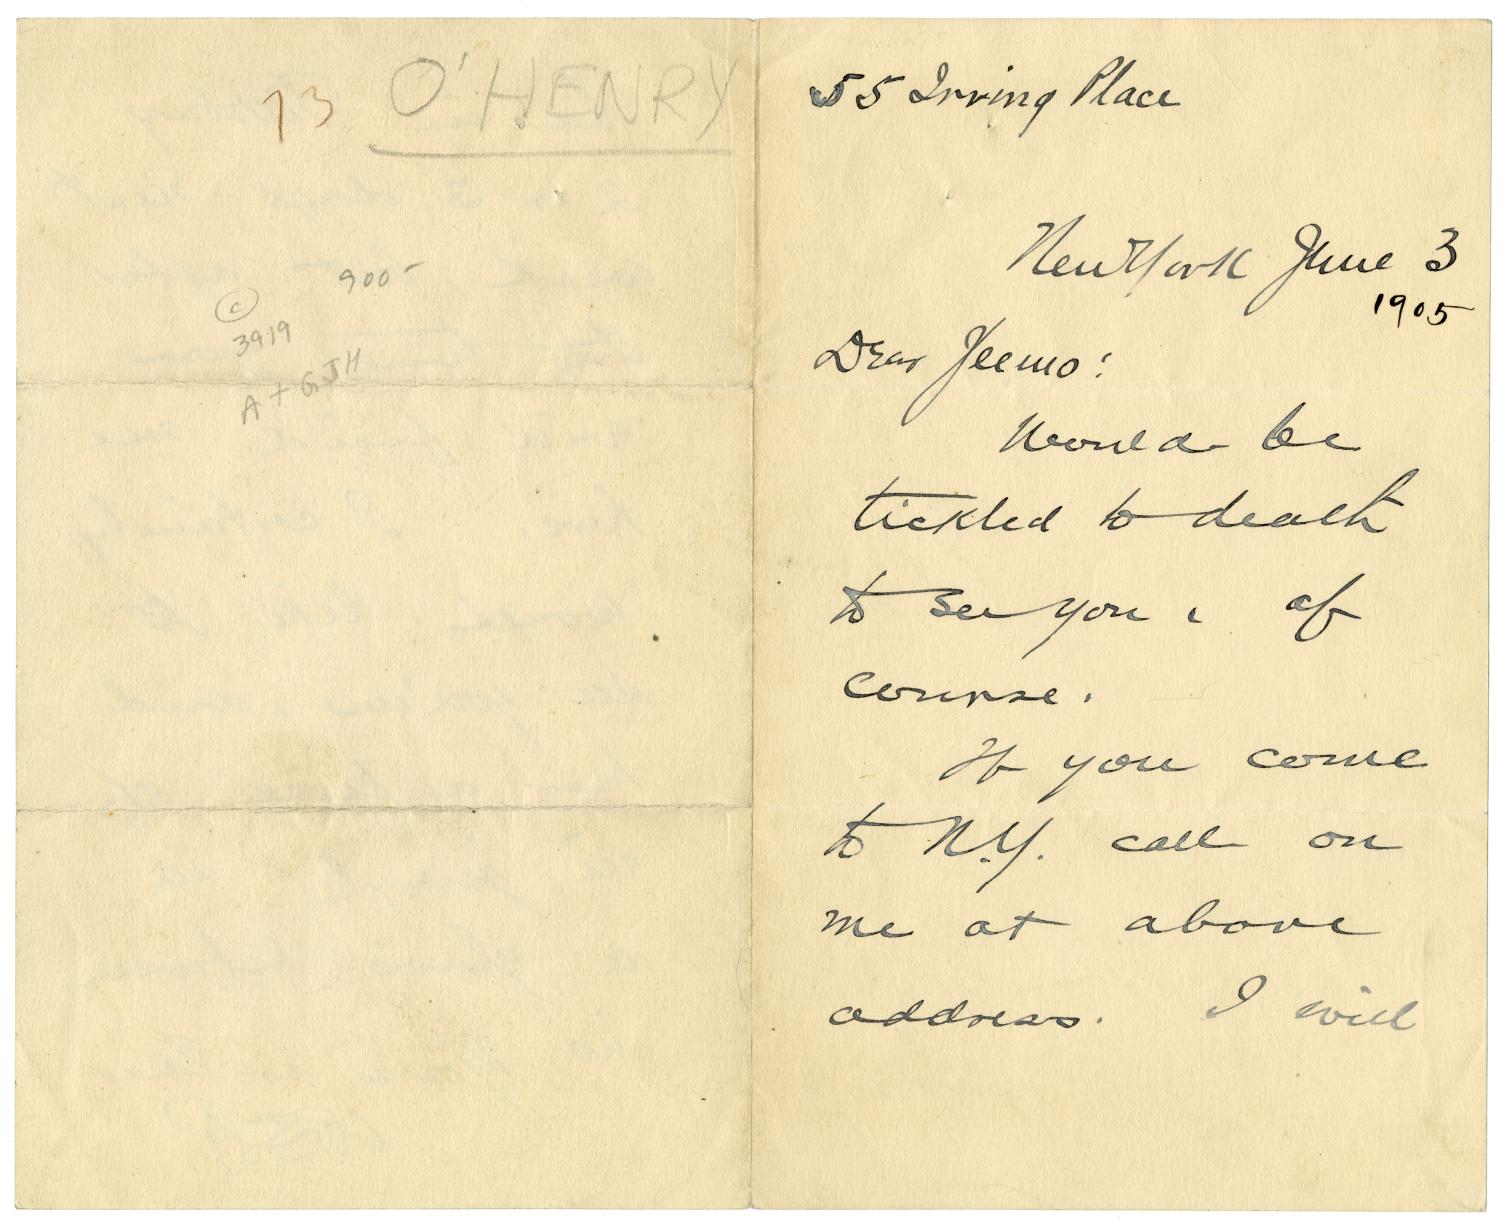 73 O'HENRY
900-
c
3919
A + GJH
55 Irving Place
New York June 3
1905
Dear Jeemo:
Would be
tickled to death
to see you, of
course.
If you come
to N.Y. call on
me at above
address. I will